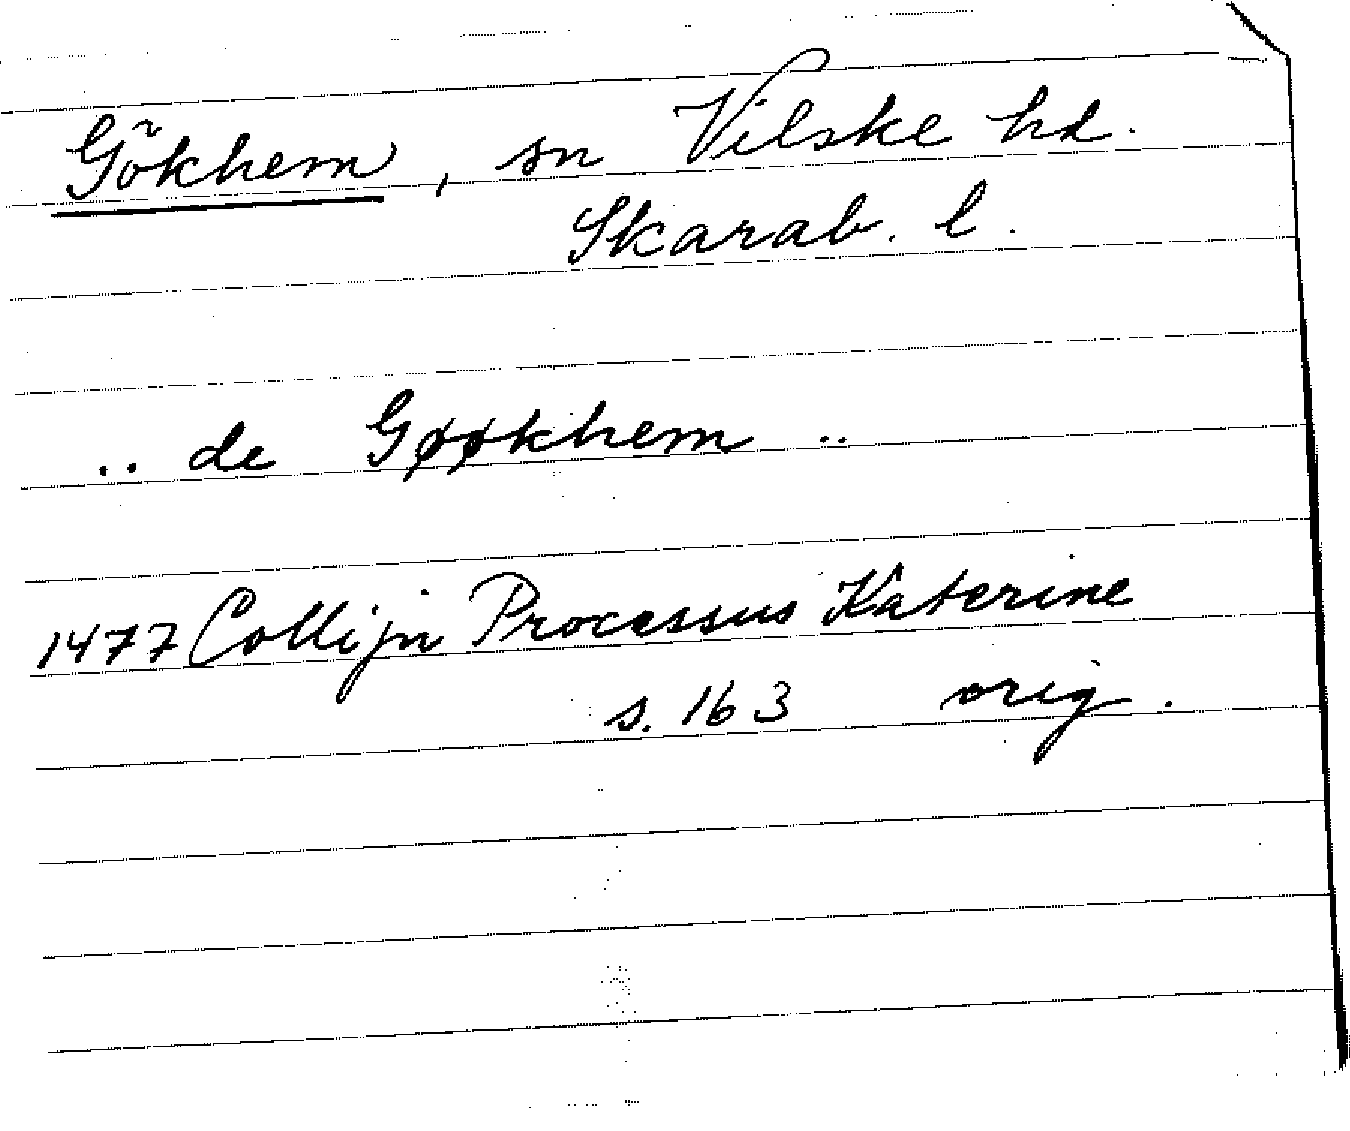 Gökhem, sn Vilske hd.
Skarab. l.
.. de Gøøkhem ..
1477 Collijn Processus Katerine
s. 163 orig.